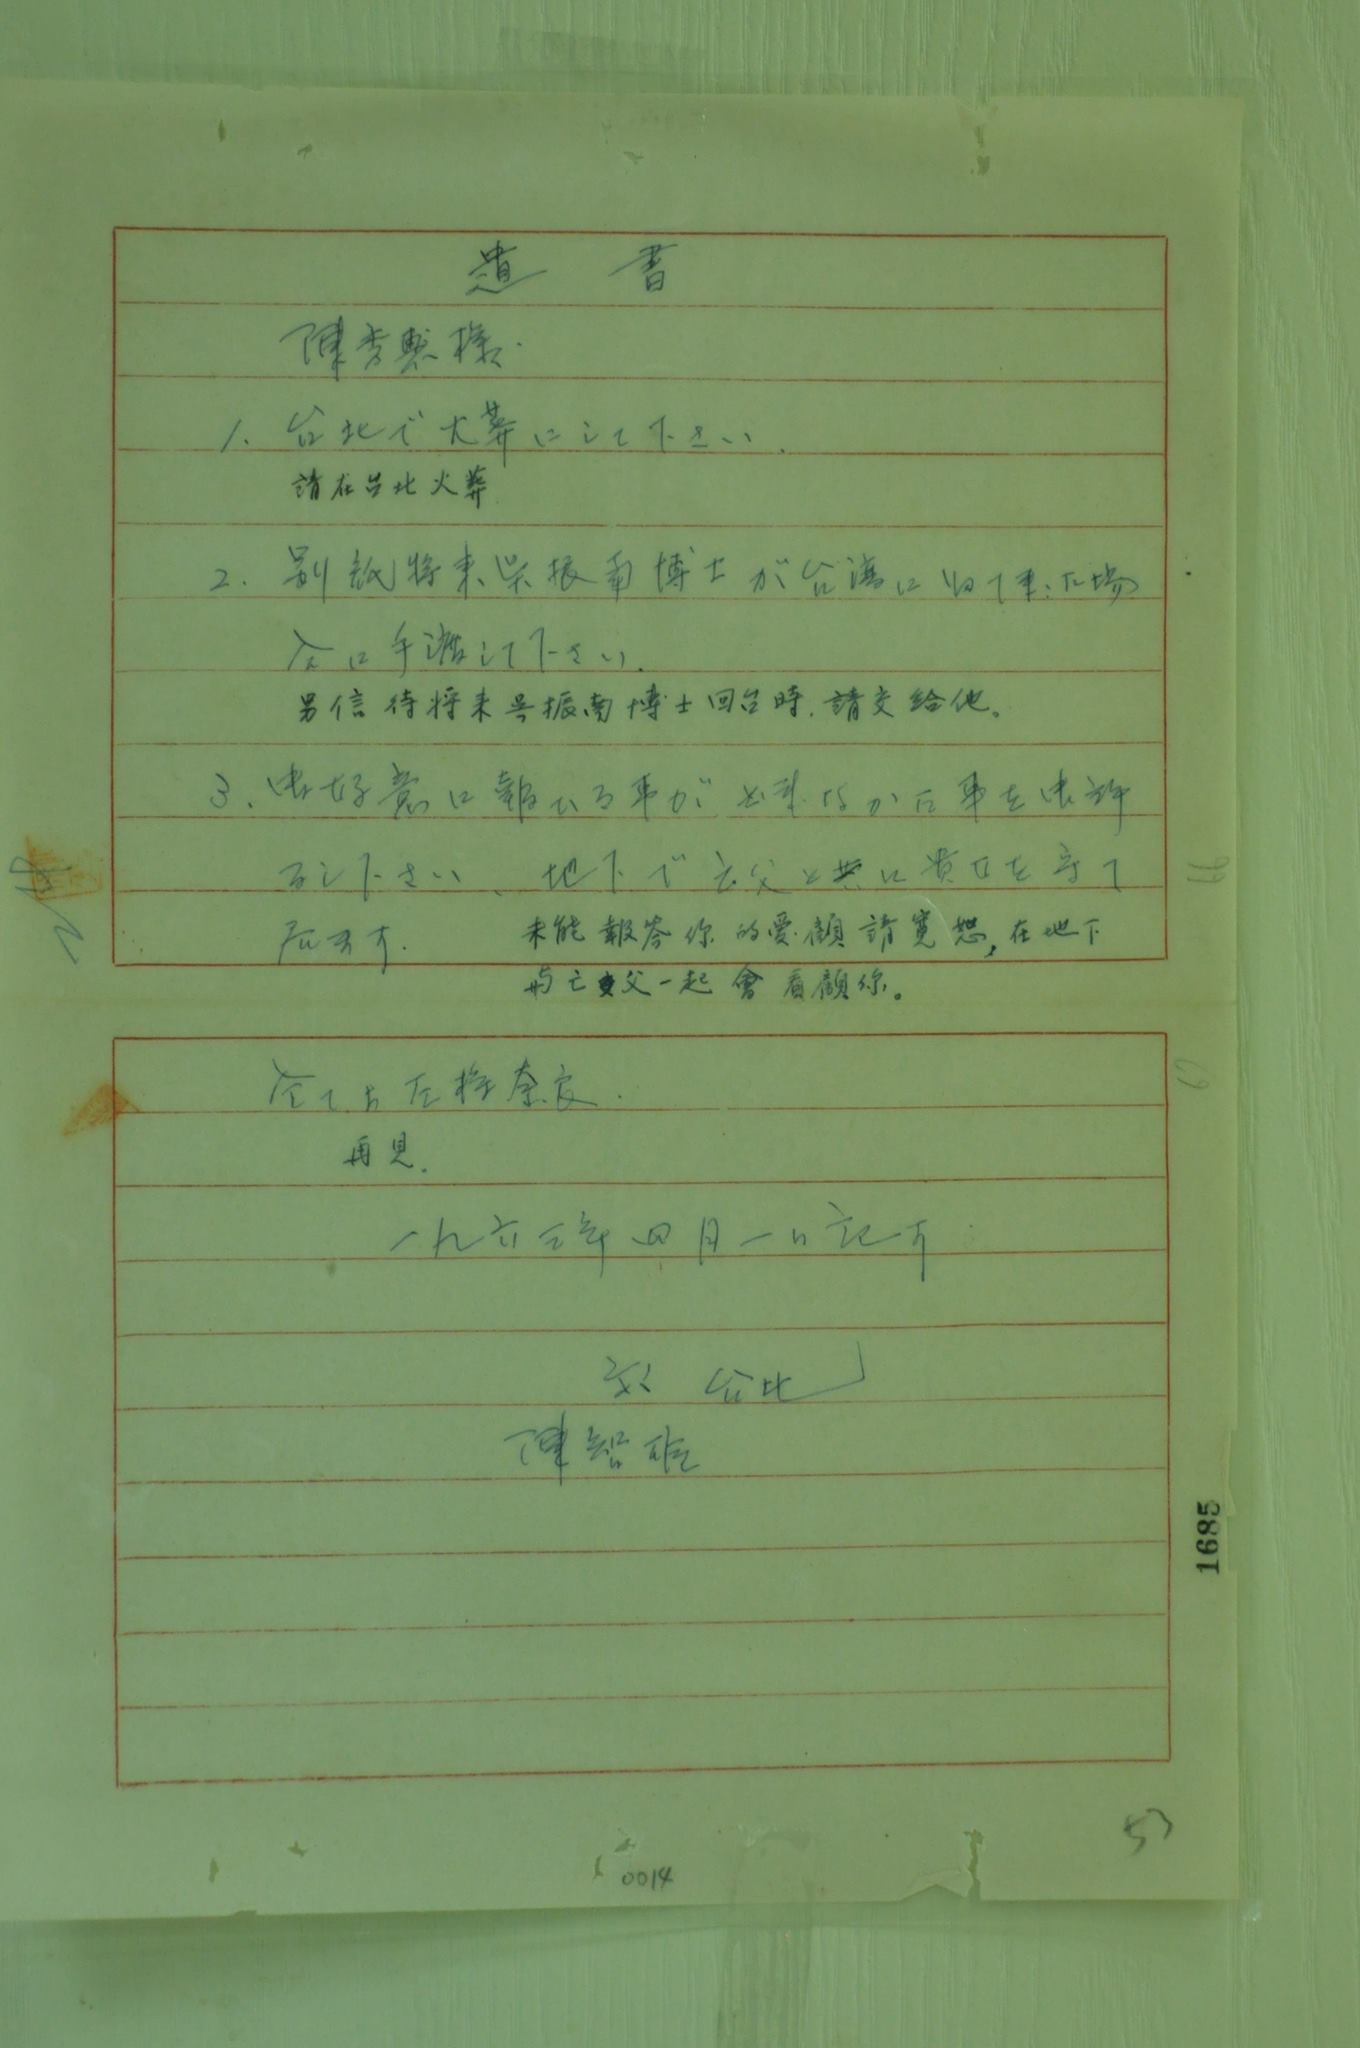 遺書
陳秀惠様.
1. 台北で火葬にして下さい.
請在台北火葬
2. 別紙将来吴振南博士が台湾に归て来た場
合に手渡して下さい.
另信待將来吴振南博士回台時.請交給他。
3. 御好意に報いる事が出来なかた事を御許
る し下さい、地下で亡父と共に貴女を守て
居ます. 未能報答你的愛顧請寬恕,在地下
與亡父一起會看顧你。
左様奈良.
再見.
一九六三年四月一日記す
於 台北
陳智雄
1685
53
0014